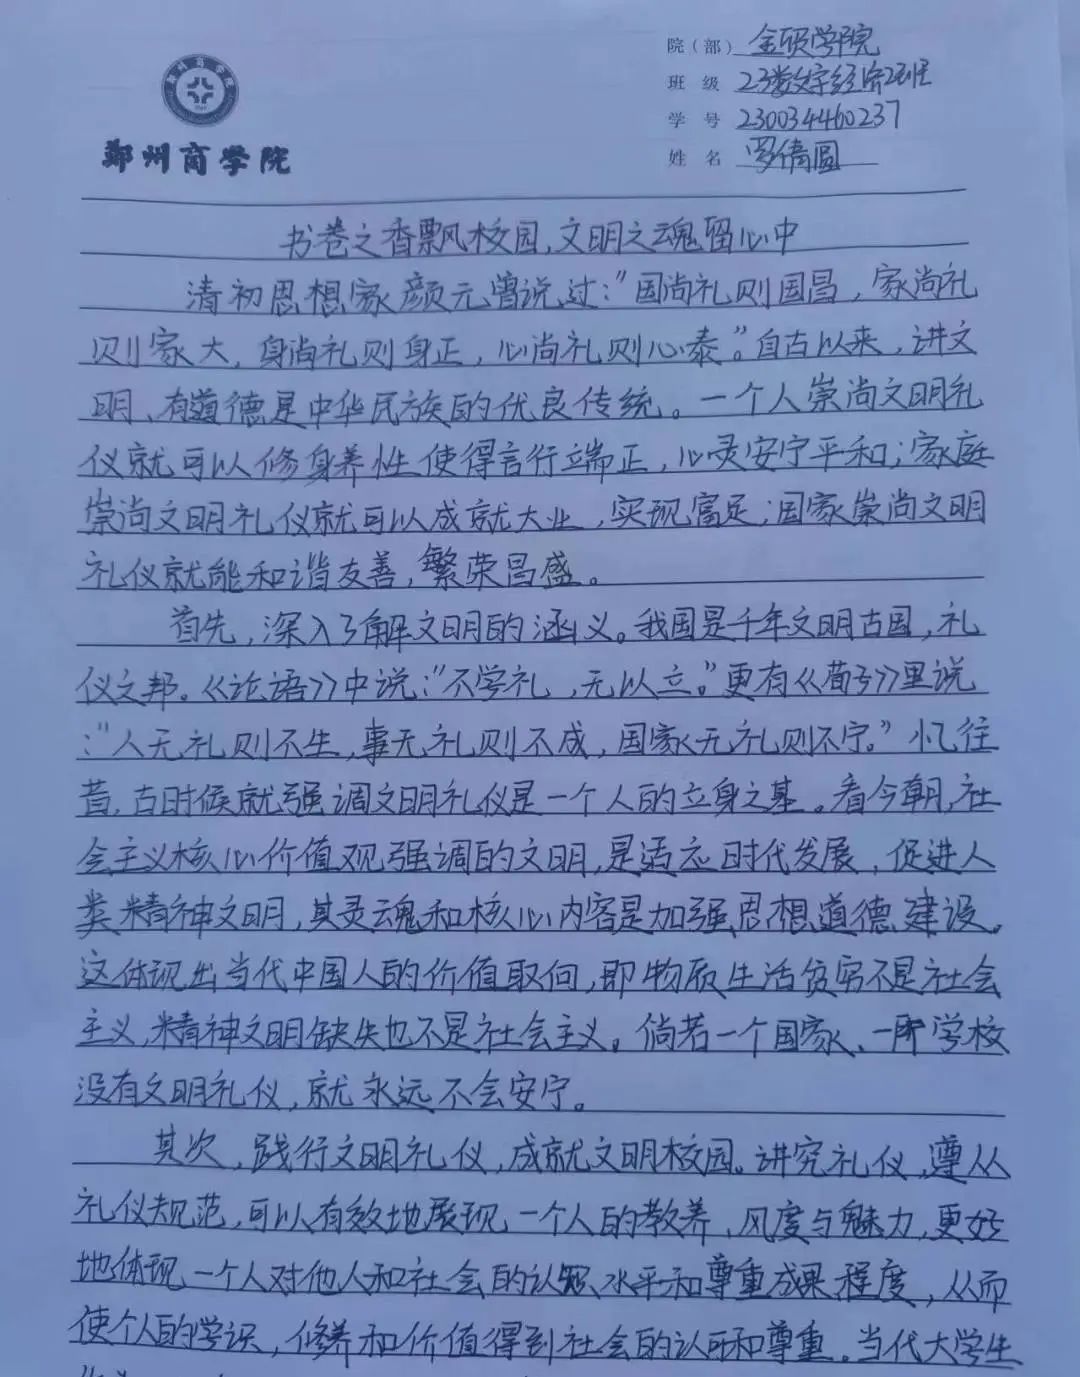 院（部） 金硕学院
班 级 23数字经济2班
学 号 230034460237
姓 名 罗倩圆
郑州商学院
书卷之香飘校园，文明之魂留心中
清初思想家颜元曾说过：“国尚礼则国昌，家尚礼
则家大，身尚礼则身正，心尚礼则心泰”。自古以来，讲文
明、有道德是中华民族的优良传统。一个人崇尚文明礼
仪就可以修身养性使得言行端正，心灵安宁平和；家庭
崇尚文明礼仪就可以成就大业，实现富足；国家崇尚文明
礼仪就能和谐友善，繁荣昌盛。
首先，深入了解文明的涵义。我国是千年文明古国，礼
仪之邦。《论语》中说：“不学礼，无以立。”更有《荀子》里说
：“人无礼则不生，事无礼则不成，国家无礼则不宁。”忆往
昔，古时候就强调文明礼仪是一个人的立身之基。看今朝，社
会主义核心价值观强调的文明，是适应时代发展，促进人
类精神文明，其灵魂和核心内容是加强思想道德建设。
这体现出当代中国人的价值取向，即物质生活贫穷不是社会
主义，精神文明缺失也不是社会主义。倘若一个国家、一所学校
没有文明礼仪，就永远不会安宁。
其次，践行文明礼仪，成就文明校园。讲究礼仪，遵从
礼仪规范，可以有效地展现一个人的教养、风度与魅力，更好
地体现一个人对他人和社会的认知水平和尊重成果程度，从而
使个人的学识，修养和价值得到社会的认可和尊重。当代大学生